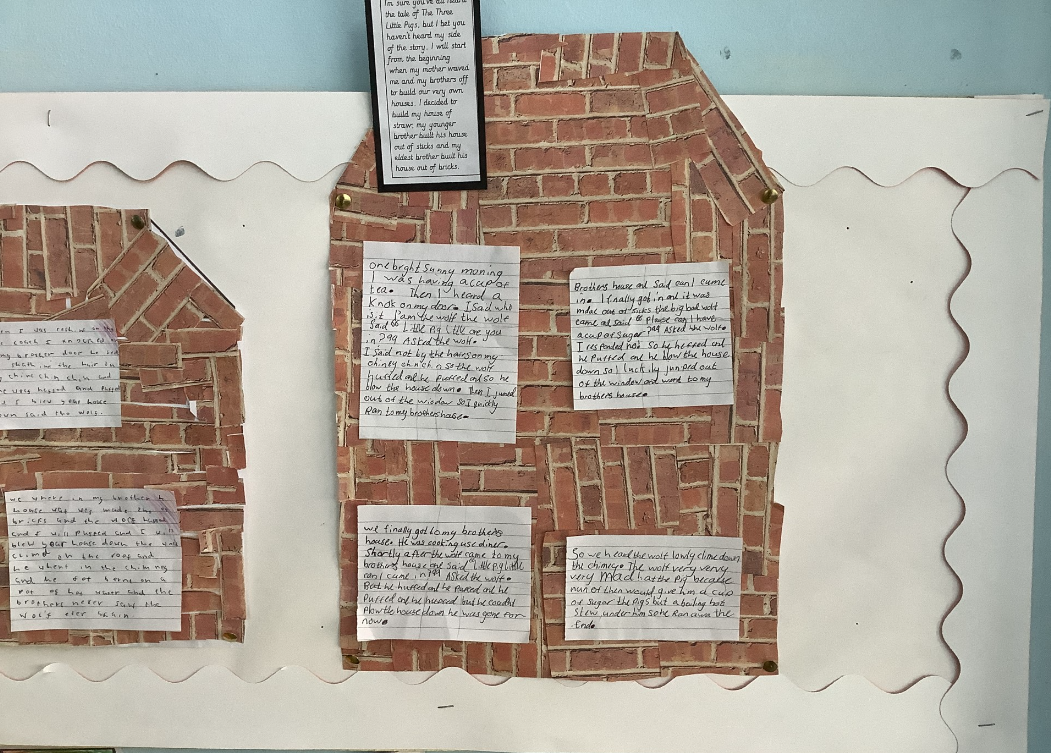 I'm sure you've all heard
the tale of The Three
Little Pigs, but I bet you
haven't heard my side
of the story. I will start
from the beginning
when my mother waved
me and my brothers off
to build our very own
houses. I decided to
build my house of
straw; my younger
brother built his house
out of sticks and my
eldest brother built his
house out of bricks.
one brght Sunny moning
I was having a cup of
tea. Then I heard a
Knok on my door. I sad who
is it I'am the wolf the wolf
Said " Little Pig Little are you
in?" Asked the wolf.
I Said not by the hairs on my
chiney chin chin so the wolf
Huffed and he puffed and so he
blow the house down. Then I jumed
out of the window so I quickly
Ran to my brothers hase.
Brothers house and Said can I came
in. I finally got in and it was
made out of sticks the big bad wolf
came and said "Please can I have
a cup of sugar?" Asked the wolf.
I responded no. So he heffed and
he Puffed and he blow the house
down so I luckily jumed out
of the window and went to my
brothers house.
we finally got to my brothers
house. He was cooking use diner.
Shortly after the wolf came to my
brothers house and said "Little Pig little
can I came in?" Asked the wolf.
But he huffed and he Puffed and he
Puffed and he huffed but he couldnt
Plow the house down he was gone for
now.
So we head the wolf lowdy clime down
the chimey. The wolf very very
very Mad hat the Pig because
nun of then would give him a cup
of sugar the Pigs but a boiling hot
Stew under him so he Ran away the
End.
my brother door he
chin chin and
blew your house
down said the wolf.
we where in my brother
house was made
bricks and the wolf
and I will Puffed and I will
blew your house down the wolf
climd on the roof and
he whent in the
and he got on a
Pot of hot water and the
brothers never saw the
wolf ever again.